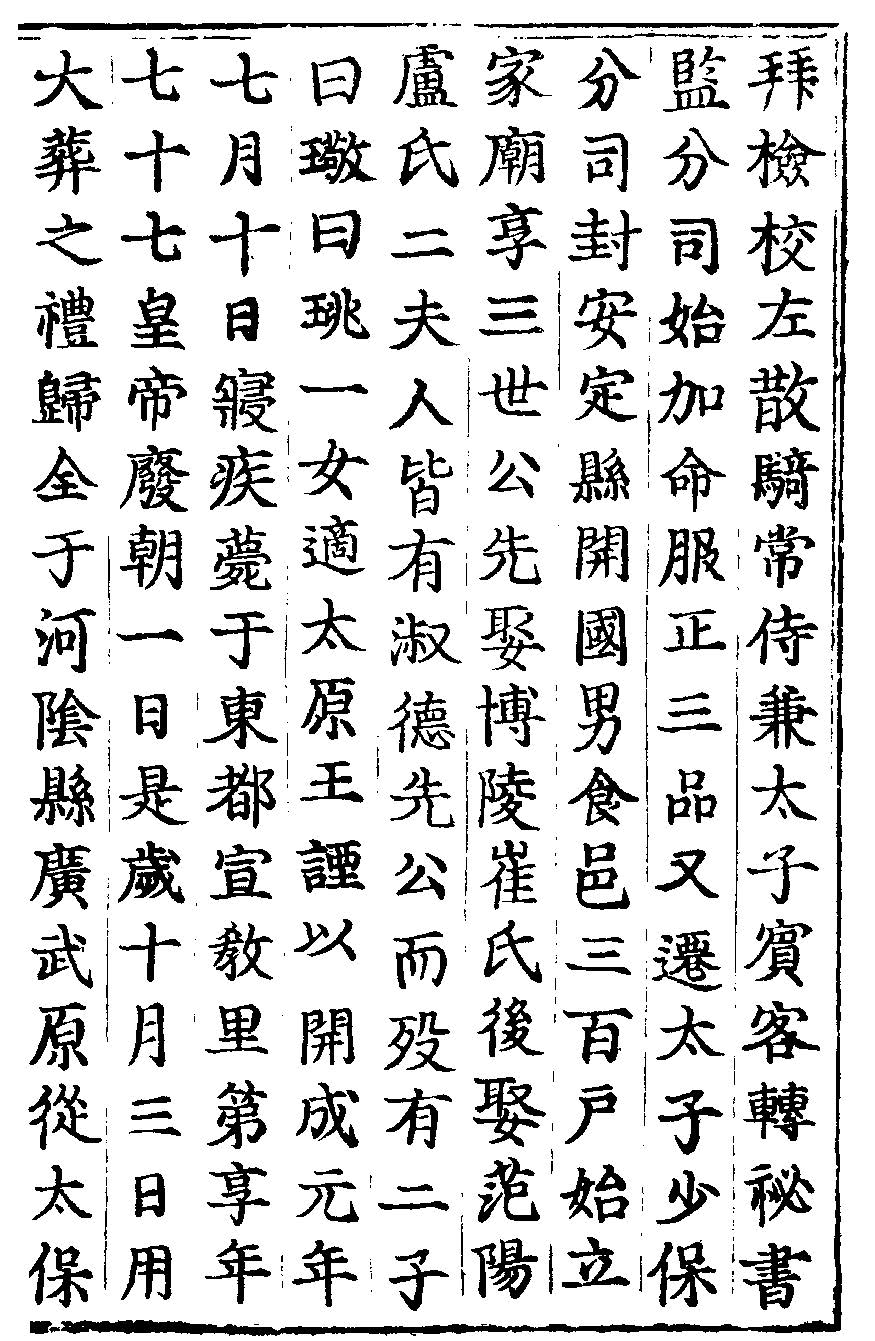 拜檢校左散騎常侍兼太子賓客轉祕書
監分司始加命服正三品又遷太子少保
分司封安定縣開國男食邑三百戶始立
家廟享三世公先娶博陵崔氏後娶范陽
盧氏二夫人皆有淑德先公而歿有二子
曰璥曰珧一女適太原王諲以開成元年
七月十日寢疾薨于東都宣教里第享年
七十七皇帝廢朝一日是歲十月三日用
大葬之禮歸全于河陰縣廣武原從太保